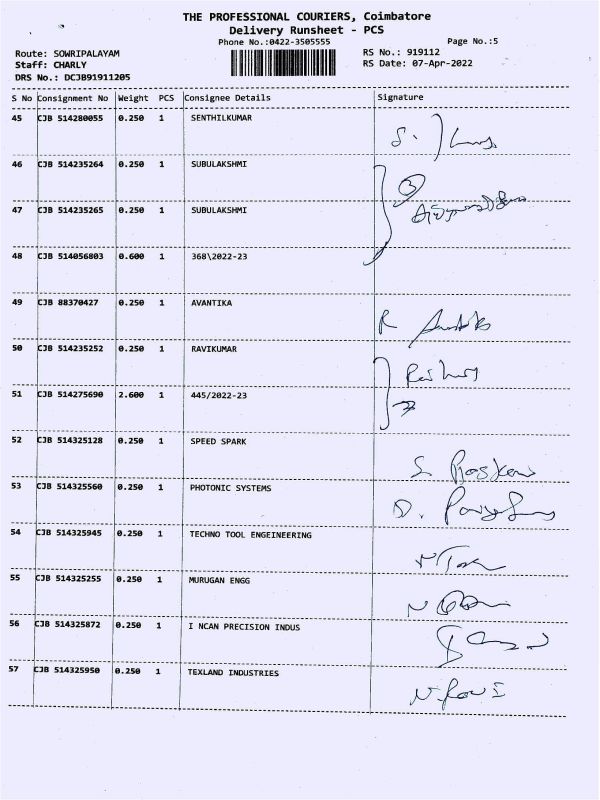 THE PROFESSIONAL COURIERS, Coimbatore
Delivery Runsheet - PCS
Phone No.:0422-3505555
Page No.:5
Route: SOWRIPALAYAM
RS No.: 919112
Staff: CHARLY
RS Date: 07-Apr-2022
DRS No.: DCJB91911205
S No Consignment No Weight PCS Consignee Details Signature
45 CJB 514280055 0.250 1 SENTHILKUMAR
46 CJB 514235264 0.250 1 SUBULAKSHMI
47 CJB 514235265 0.250 1 SUBULAKSHMI
48 CJB 514056803 0.600 1 368\2022-23
49 CJB 88370427 0.250 1 AVANTIKA
50 CJB 514235252 0.250 1 RAVIKUMAR
51 CJB 514275690 2.600 1 445/2022-23
52 CJB 514325128 0.250 1 SPEED SPARK
53 CJB 514325560 0.250 1 PHOTONIC SYSTEMS
54 CJB 514325945 0.250 1 TECHNO TOOL ENGEINEERING
55 CJB 514325255 0.250 1 MURUGAN ENGG
56 CJB 514325872 0.250 1 I NCAN PRECISION INDUS
57 CJB 514325950 0.250 1 TEXLAND INDUSTRIES